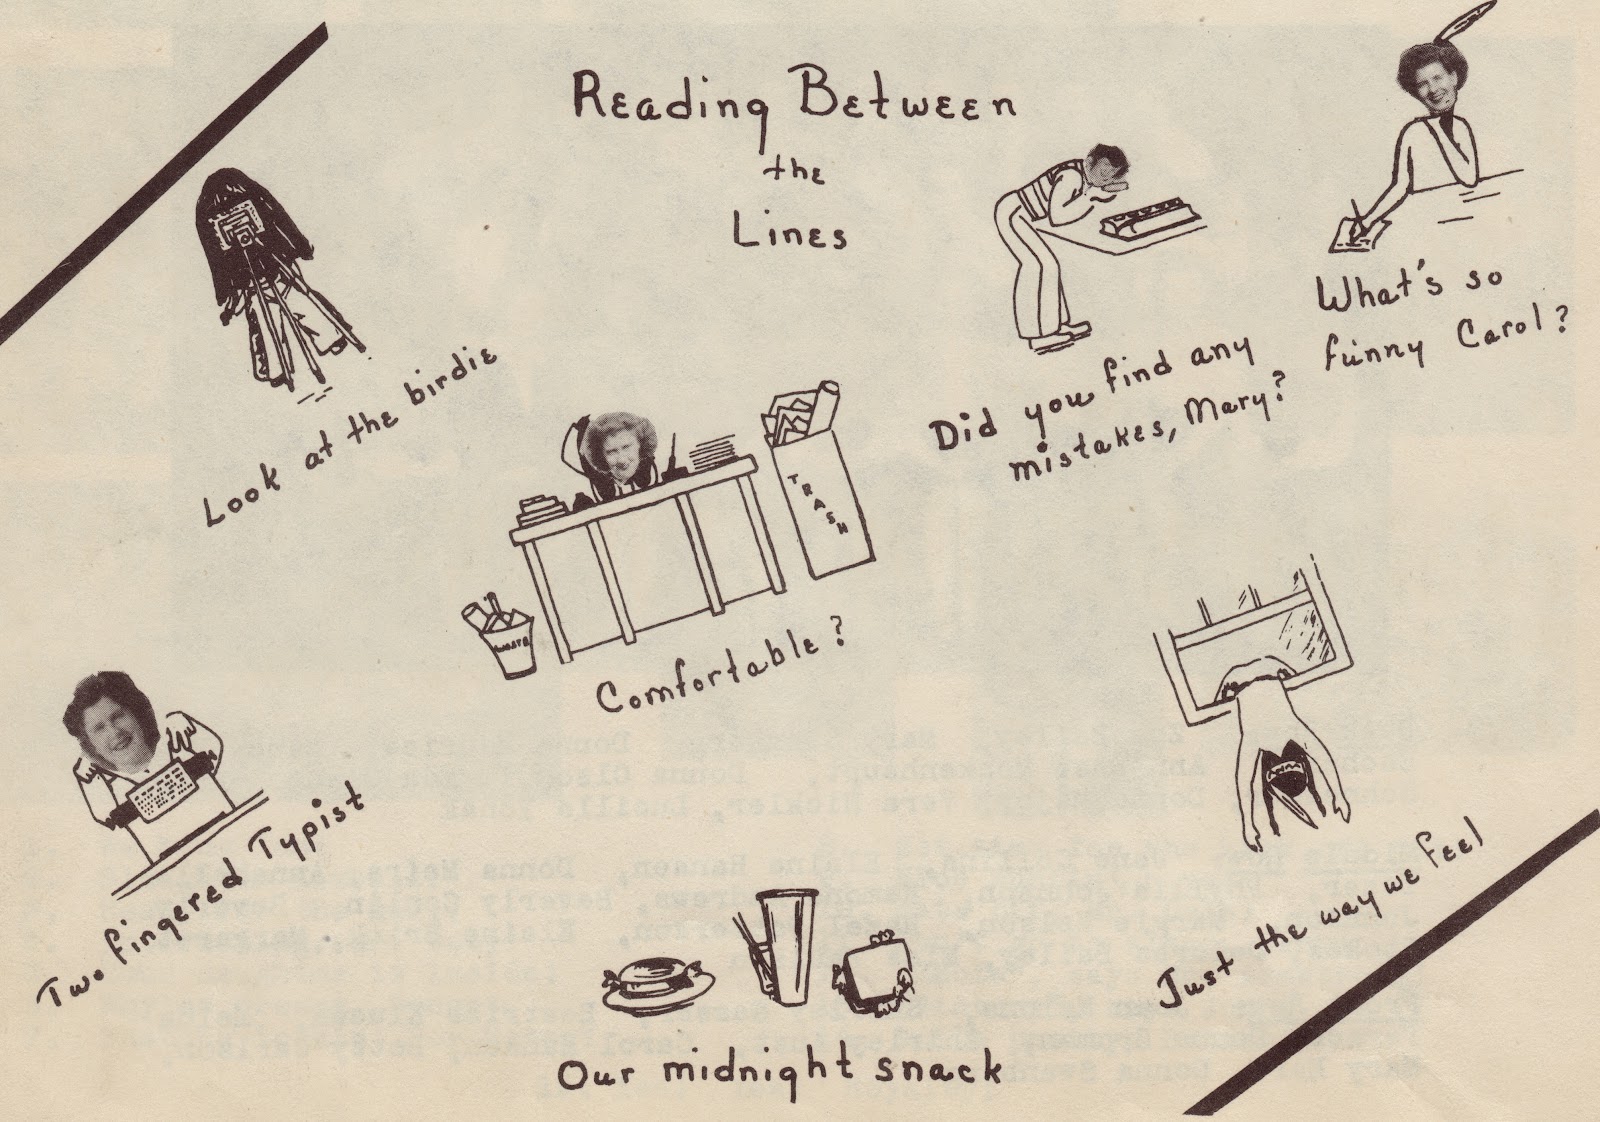 Reading Between
the
Lines
Look at the birdie
Did you find any
mistakes, Mary?
What's so
funny Carol?
TRASH
Comfortable?
Two fingered Typist
Just the way we feel
Our midnight snack